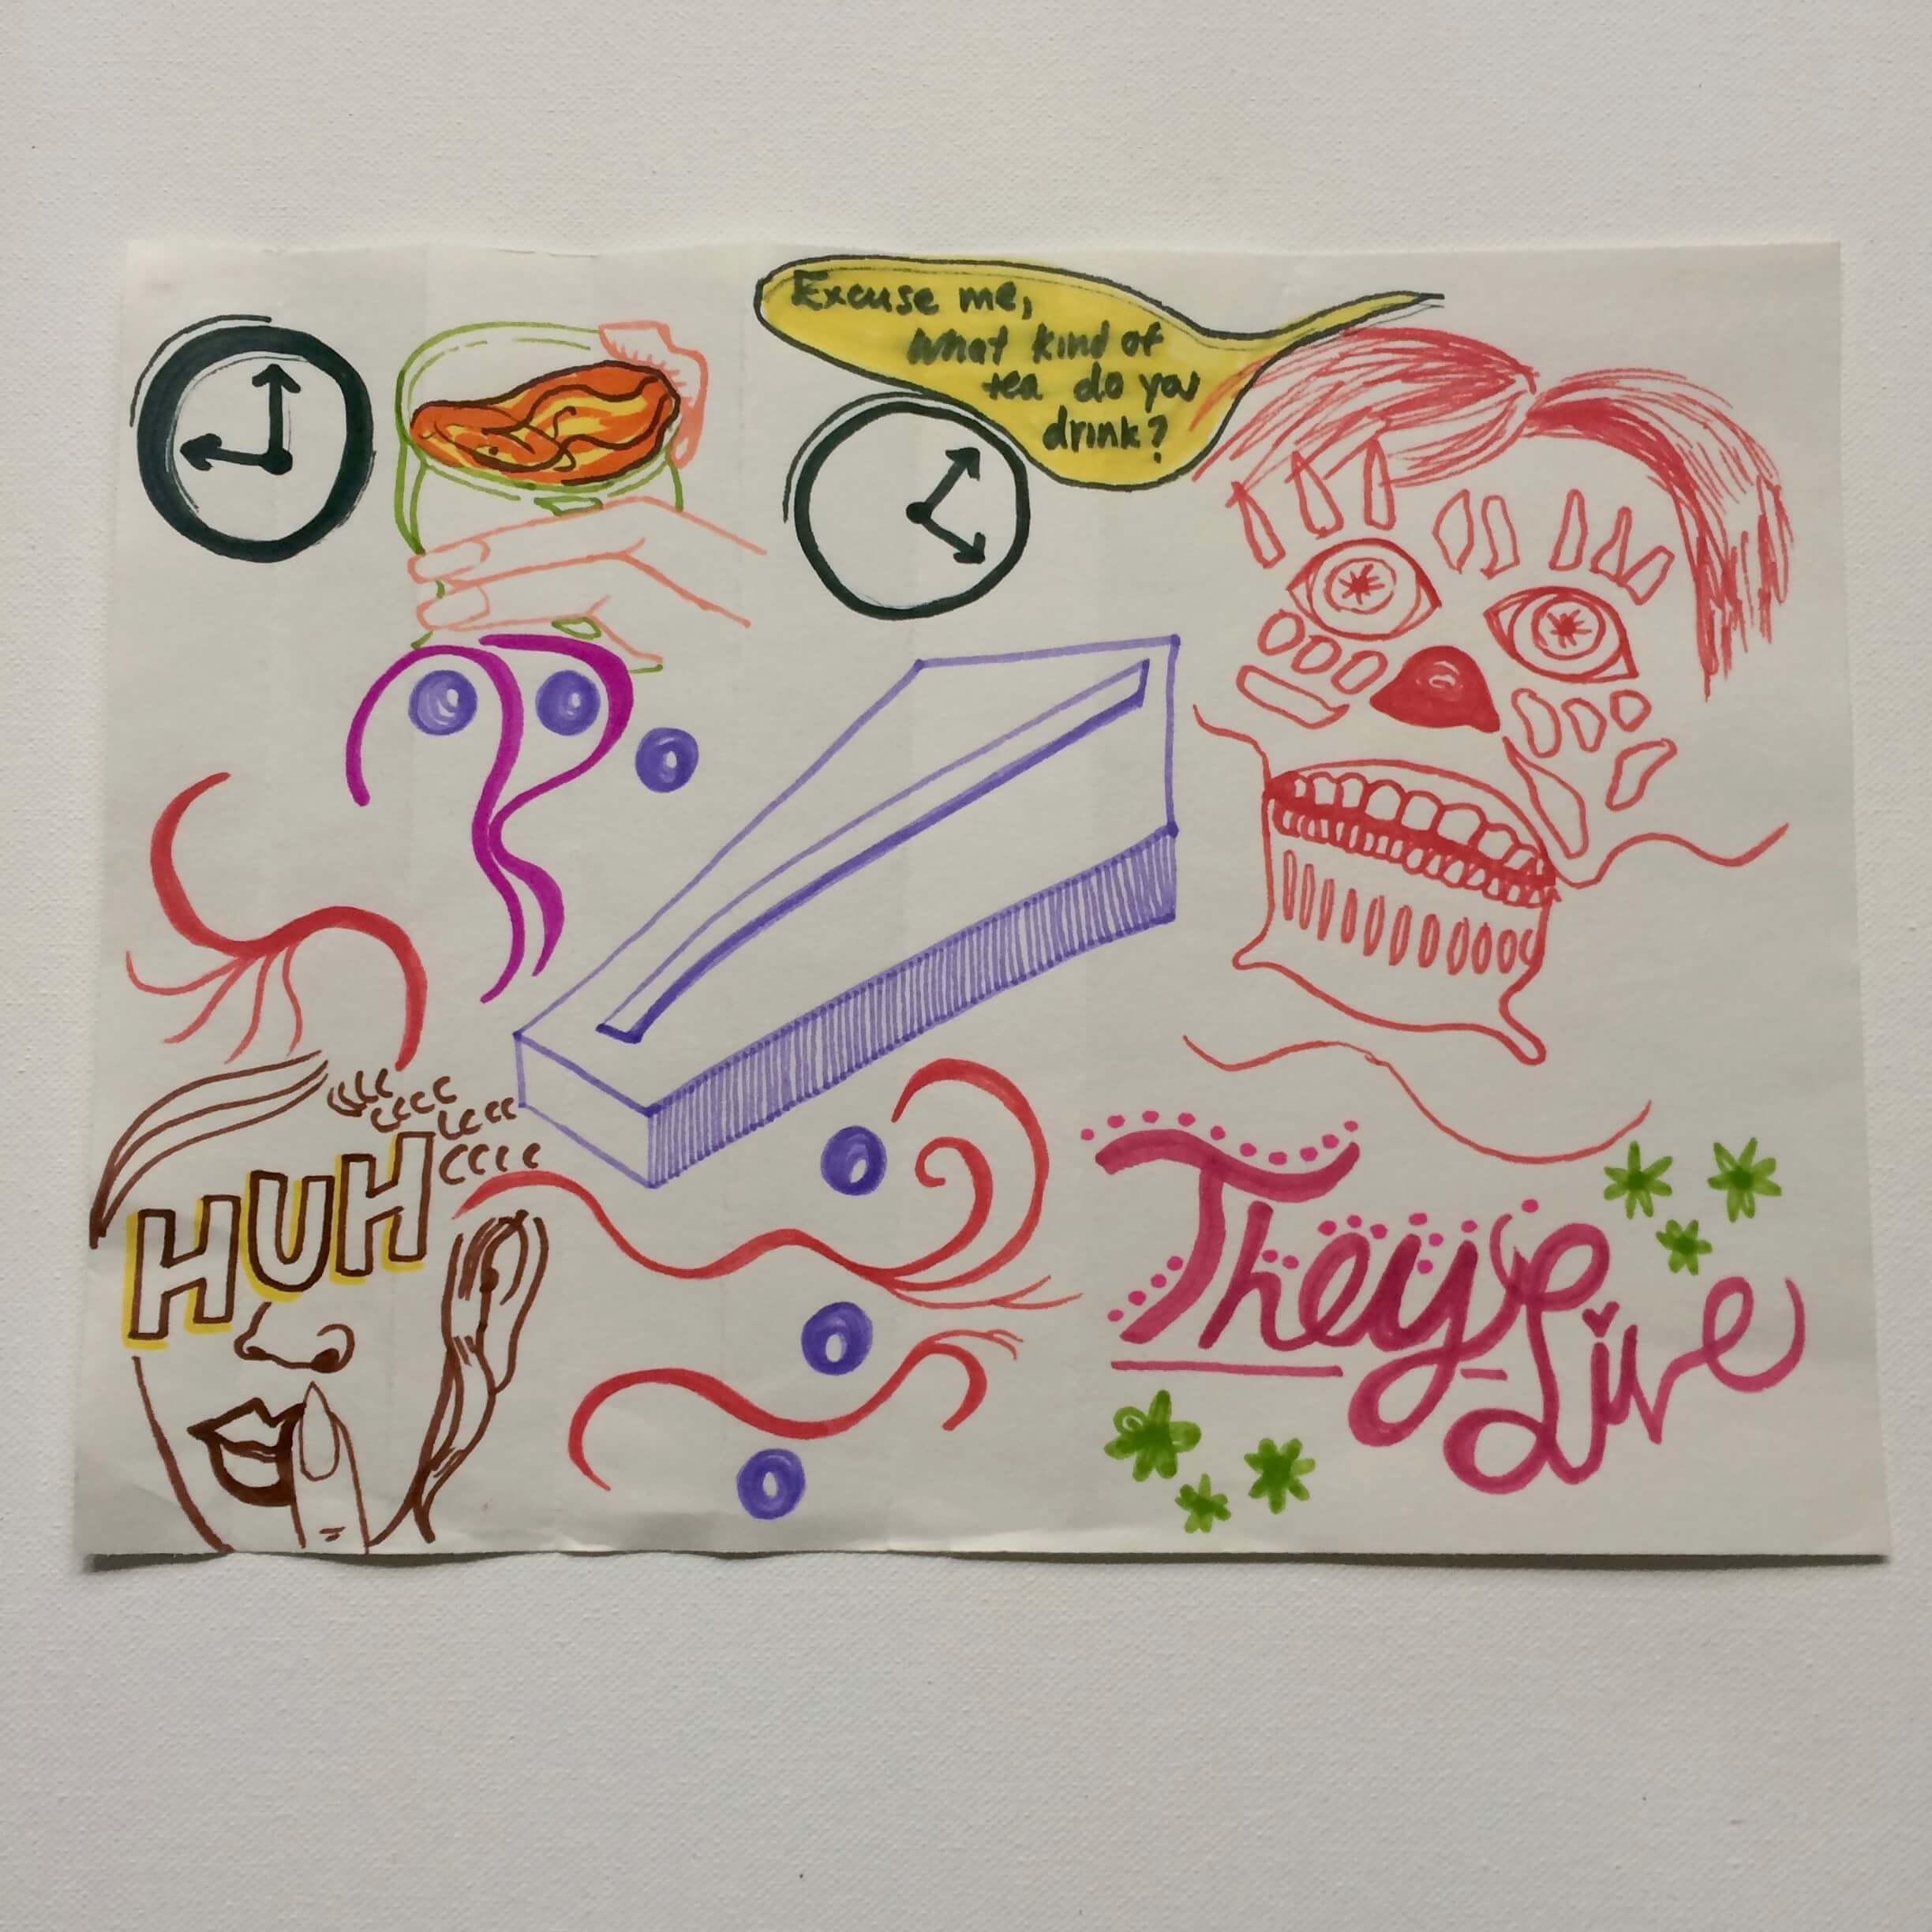 Excuse me,
What kind of
tea do you
drink?
HUH
They
Live